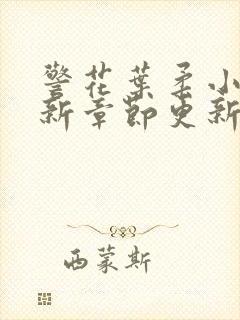 警花葉柔小
新章節更新
西蒙斯